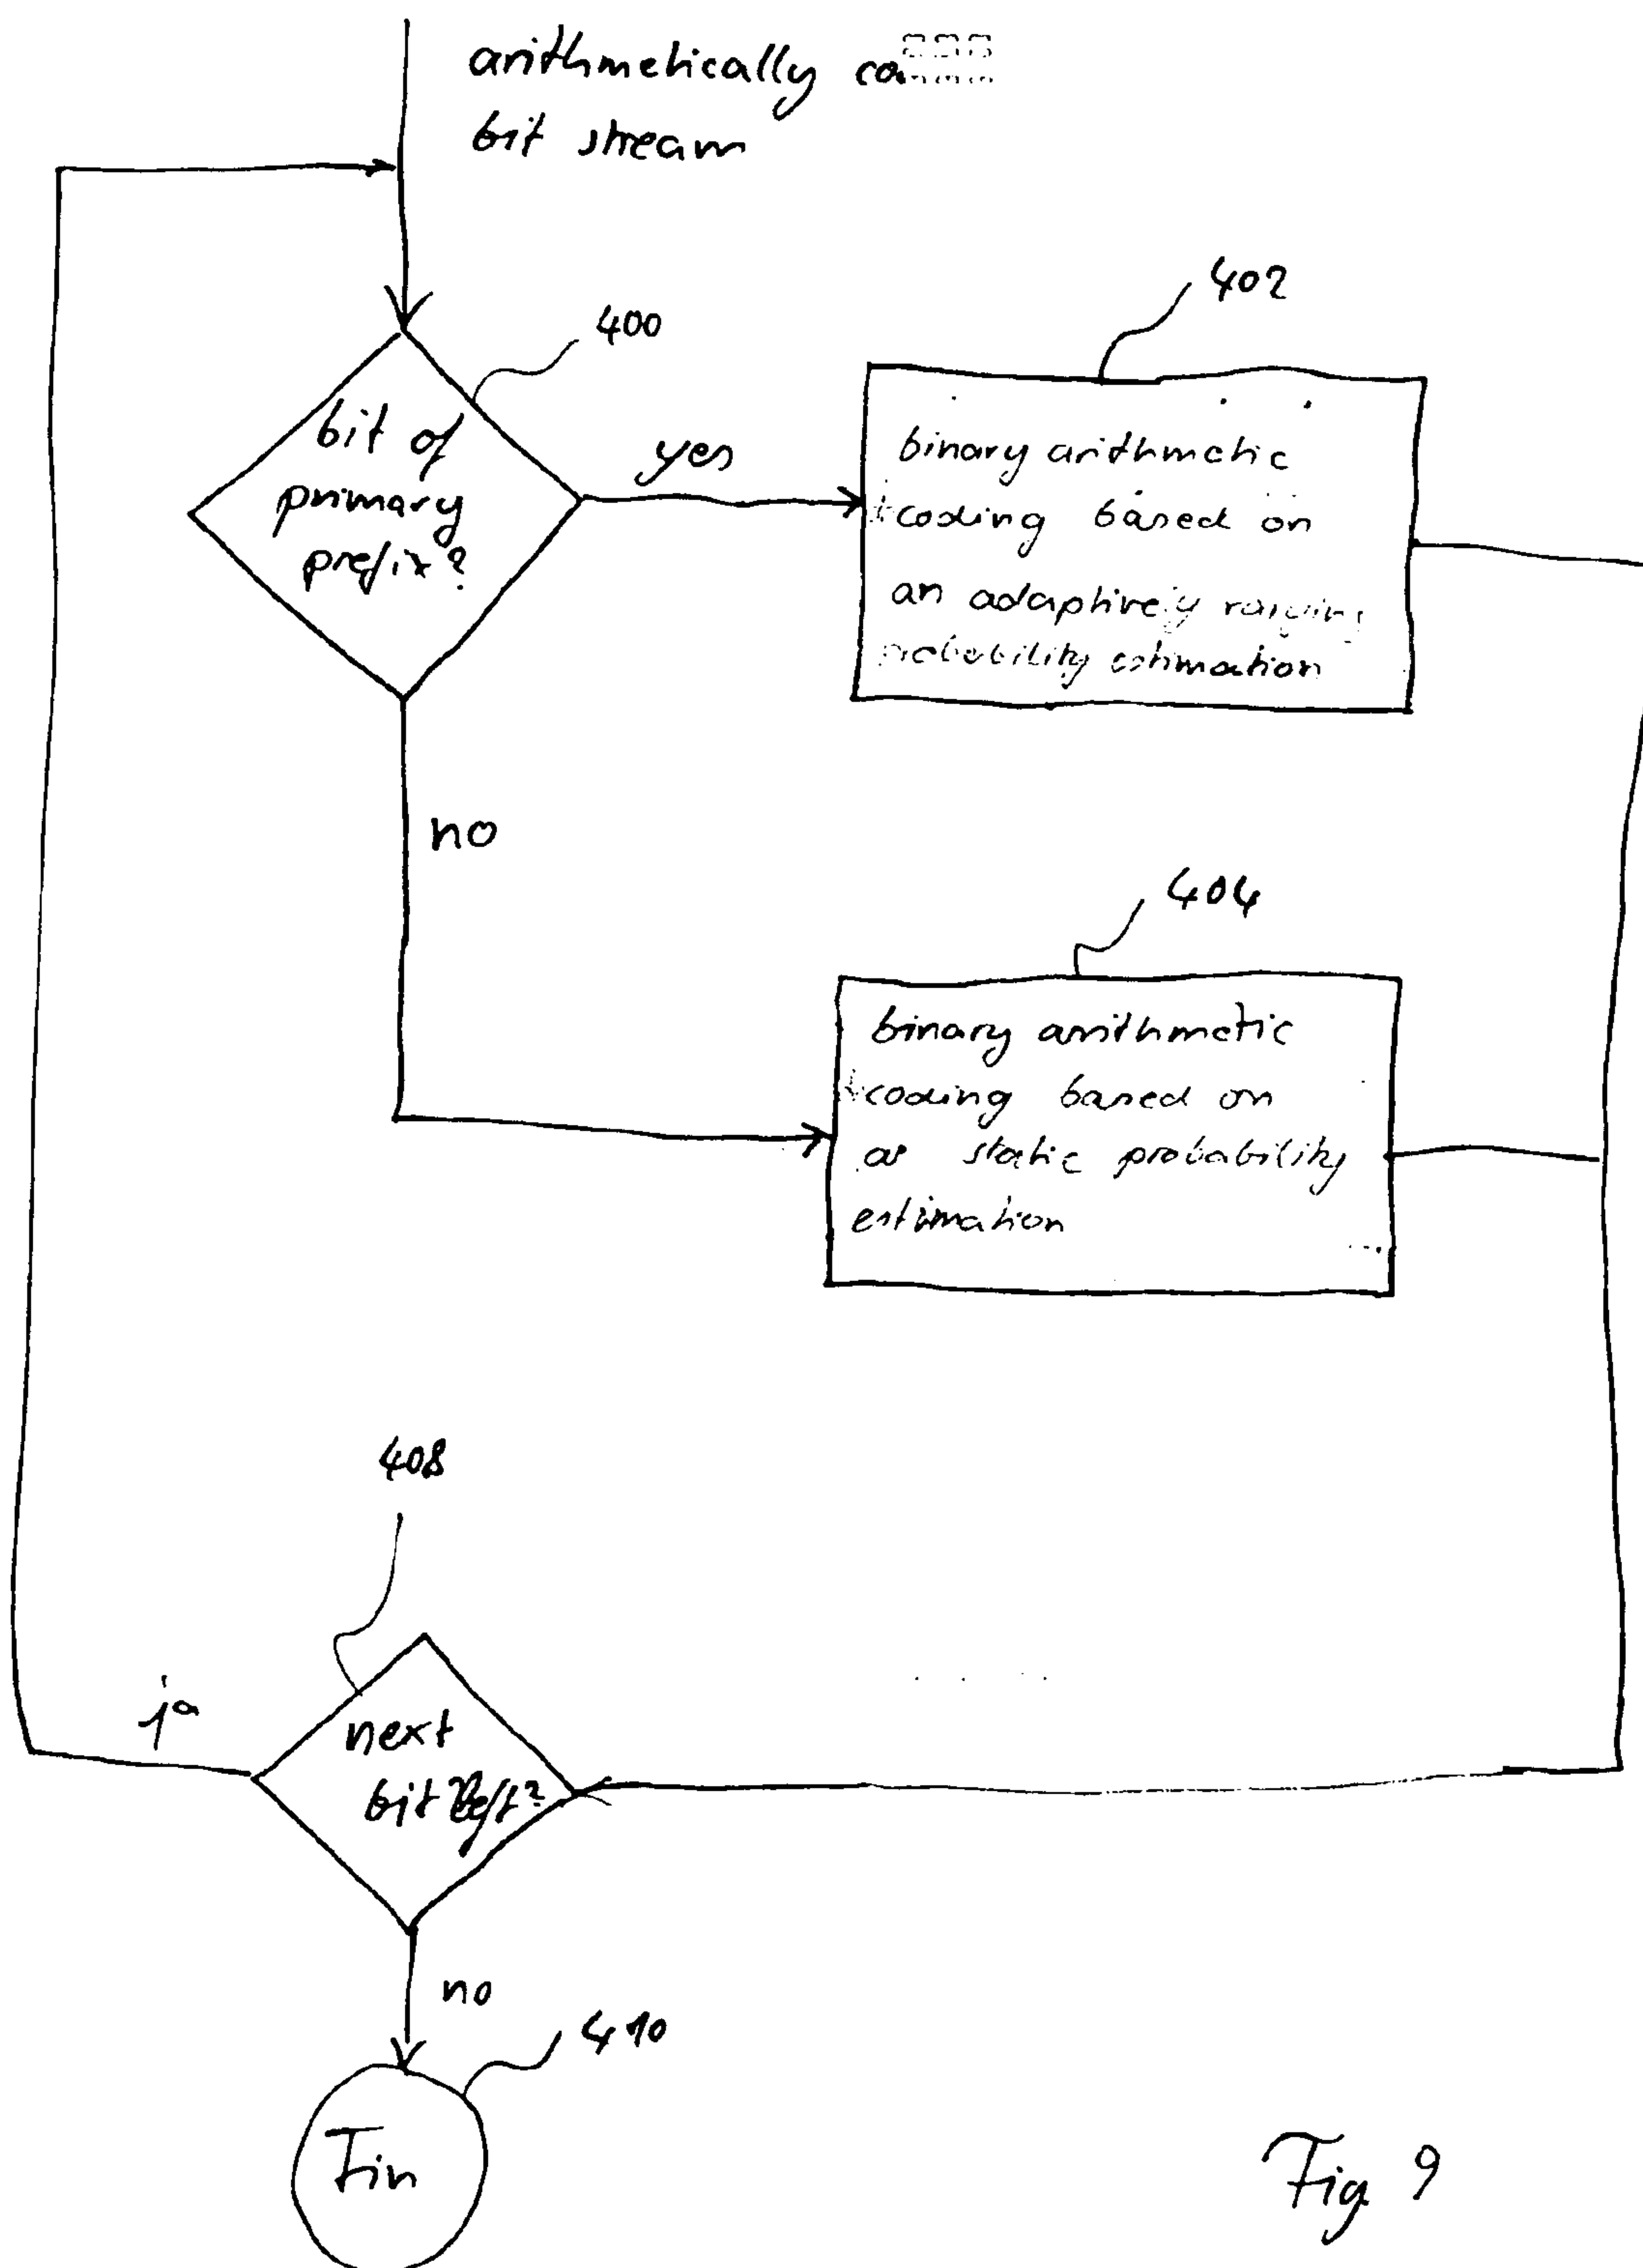 arithmetically
bit stream
402
400
bit of
primary
prefix?
yes
binary arithmetic
coding based on
an adaptively varying
probability estimation
no
404
binary arithmetic
coding based on
static probability
estimation
408
ja
next
bit left?
no
410
Fin
Fig 9